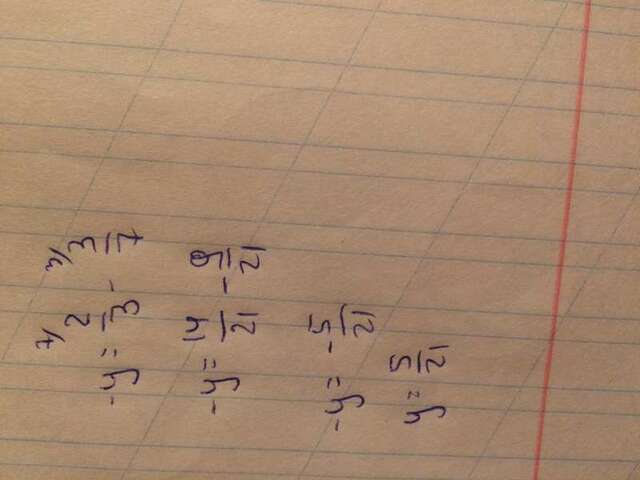 7/ 3/
-y = 2/3 - 3/7
-y = 14/21 - 9/21
-y = -5/21
y = 5/21